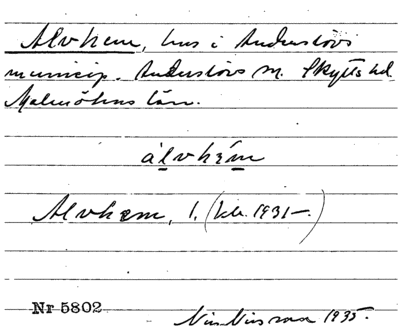 Alvhem, hus i Anderslövs
municip. Anderslövs sn. Skytts hd.
Malmöhus län.
álvhém
Alvhem, 1. (kbr. 1931–)
Nr 5802
1935.